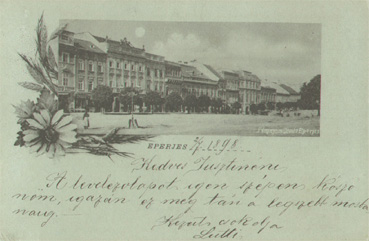 EPERJES 1898.
Kedves Jusztinéni
A levelezőlapot igen szépen köszö
nöm, igazán ez még tán a legszebb mosta
náig.
Kezeit csókolja